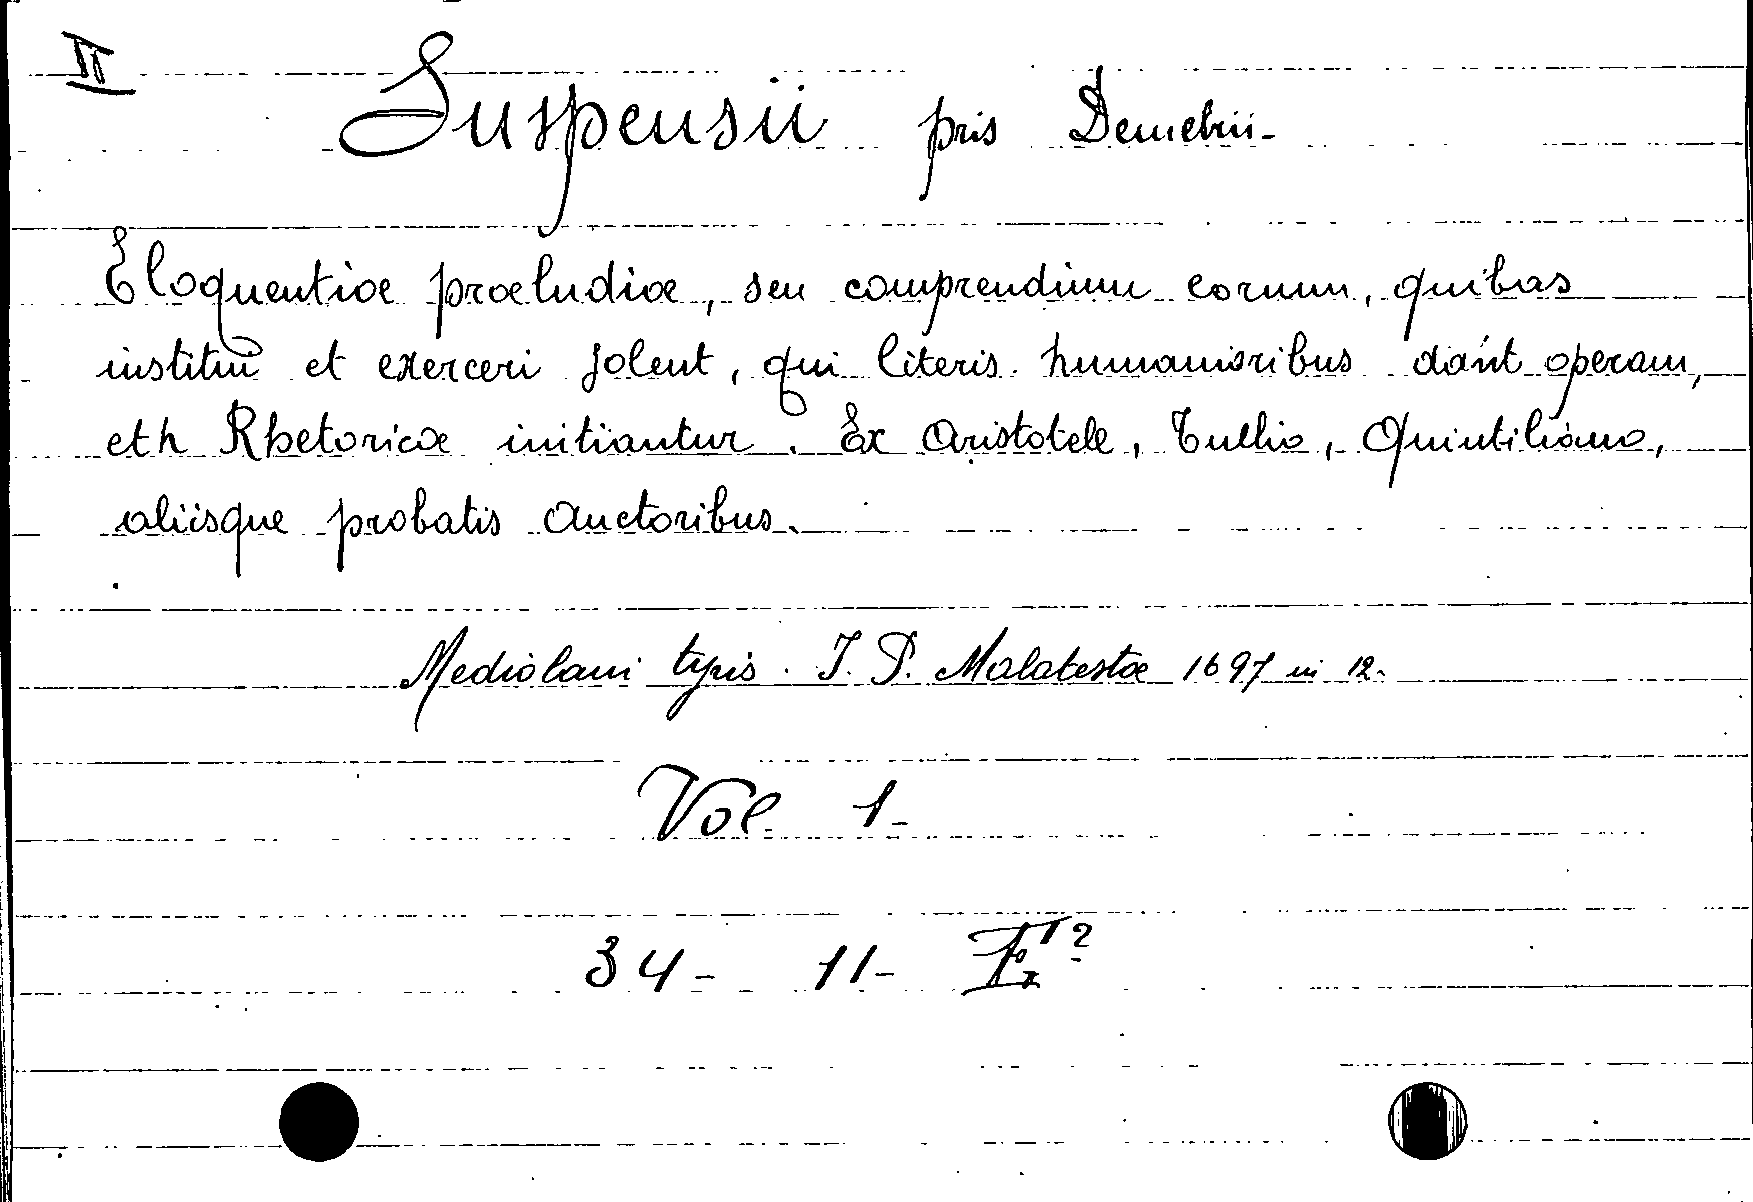 II
Suspensii pris Demetrii-
Eloquentiæ præludia, seu comprendium eorum, quibas
institui et exerceri solent, qui literis humanioribus dant operam,
eth Rhetoricæ initiantur. Ex Aristotele, Tullio, Quintiliano,
aliisque probatis auctoribus.
Mediolani typis. J. P. Malatestæ 1697 in 12.
Vol 1-
34- 11-